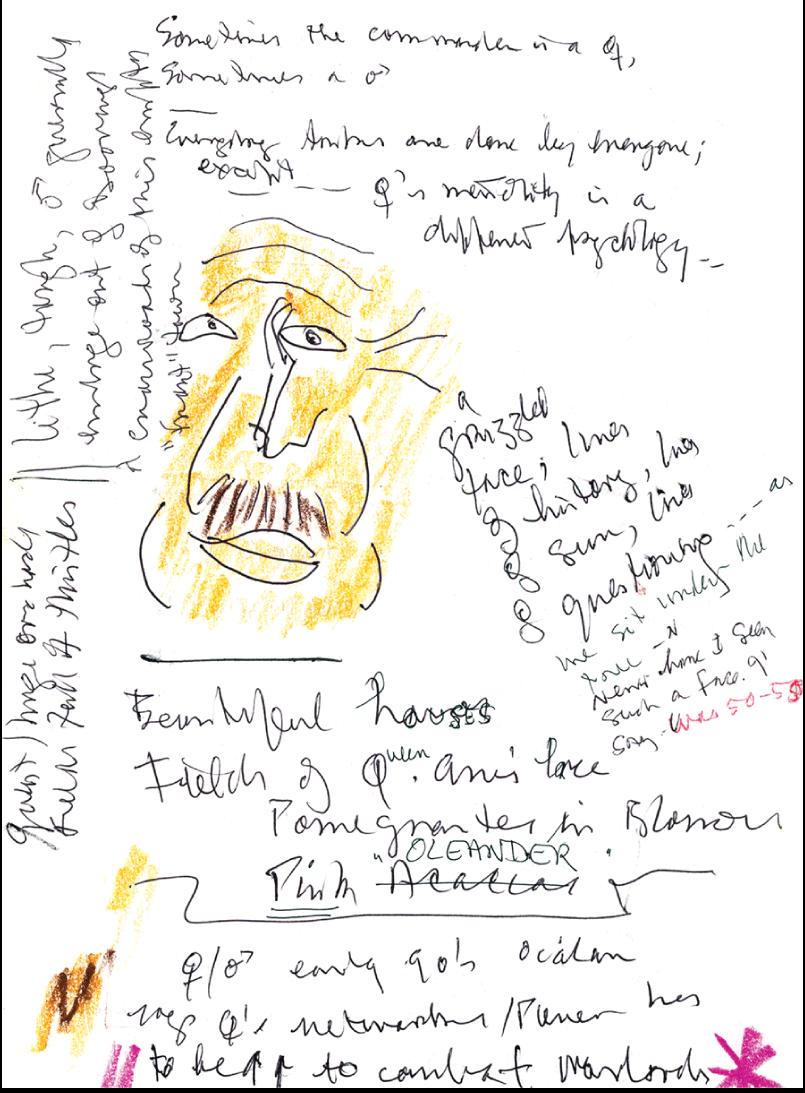 Sometimes the commander is a ♀,
Sometimes a ♂
are done by everyone;
except --- ♀'s mentality is a
different psychology --
lithe, tough, ♂ generally
emerge out of
of this
"town"
a
grizzled
face; lines
of history, lines
of sun, lines
of questioning --- as
we sit under the
never have I seen
such a face. I'd
say - was 50-55
quiet / huge
fields full of thistles
Beautiful houses
Fields of Queen Ann's lace
Pomegranates in Blossom
"OLEANDER"
Pink Acacias
♀/♂ early 90's Ocalan
says ♀'s networking / Power has
to be ↑ to combat warlords